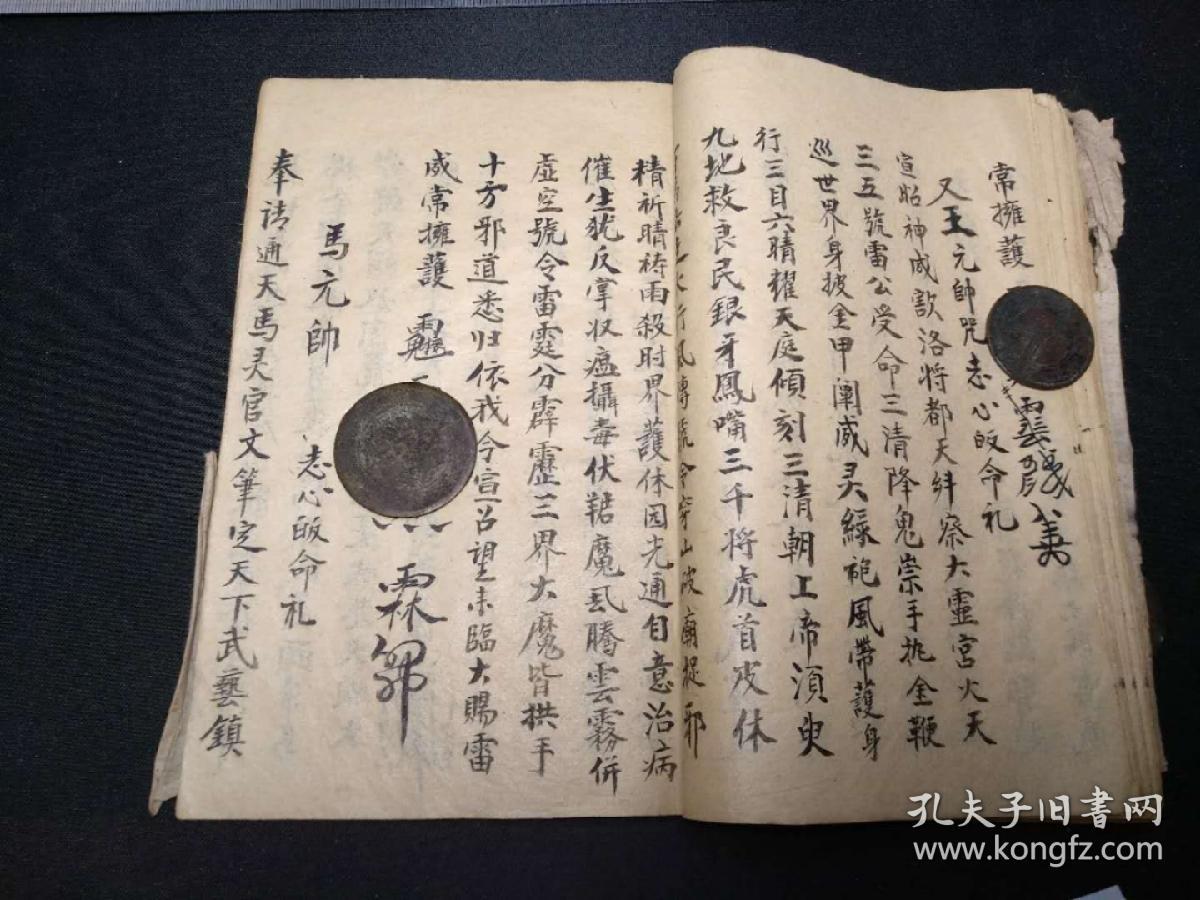 常擁護
雲
又王元帥咒志心皈命礼
宣昭神威歘洛將都天糾察大靈官火天
三五號雷公受命三清降鬼祟手执金鞭
巡世界身披金甲闡威灵緑袍風帶護身
行三目六睛耀天庭傾刻三清朝上帝湏臾
九地救良民銀牙鳳嘴三千將虎首皮休
火行風轉號令穿山破廟捉邪
精祈晴祷雨殺时界護休因光通自意治病
催生犹反掌収瘟攝毒伏轄魔乱騰雲霧併
虚空號令雷霆分霹靂三界大魔皆拱手
十方邪道悉归依我今宣召望来臨大賜雷
威常擁護
霖
馬元帥
志心皈命礼
奉請通天馬灵官文筆定天下武藝鎮
孔夫子旧书网
www.kongfz.com